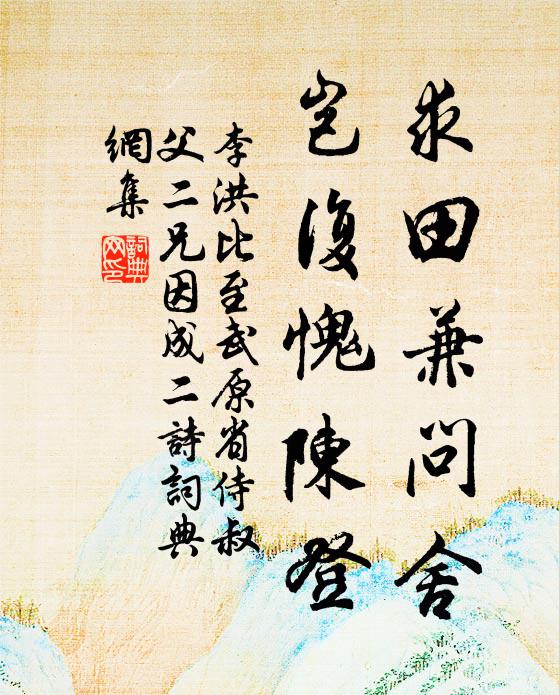 求田兼问舍
岂復愧陳登
李洪比至武原省侍叔
父二兄因成二詩詞典
網集
詞典网印